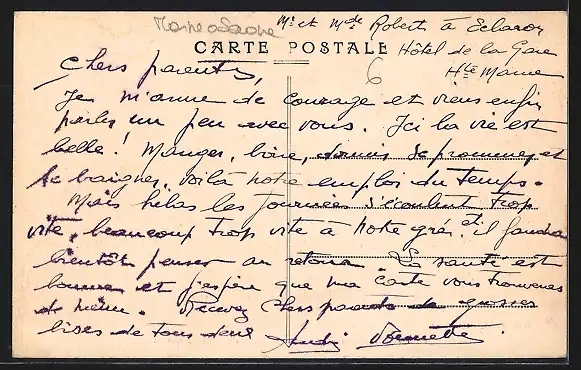 Mr et Mde Robert à Eclaron
CARTE POSTALE
Hôtel de la Gare
Hte Marne
6
Chers parents,
Je m'arme de courage et viens enfin
parler un peu avec vous. Ici la vie est
belle! Manger, boire, dormir, se promener et
se baigner, voilà notre emploi du temps.
Mais hélas les journées s'écoulent trop
vite, beaucoup trop vite à notre gré, et il faudra
bientôt penser au retour. La santé est
bonne et j'espère que ma carte vous trouvera
de même. Recevez chers parents de grosses
bises de tous deux